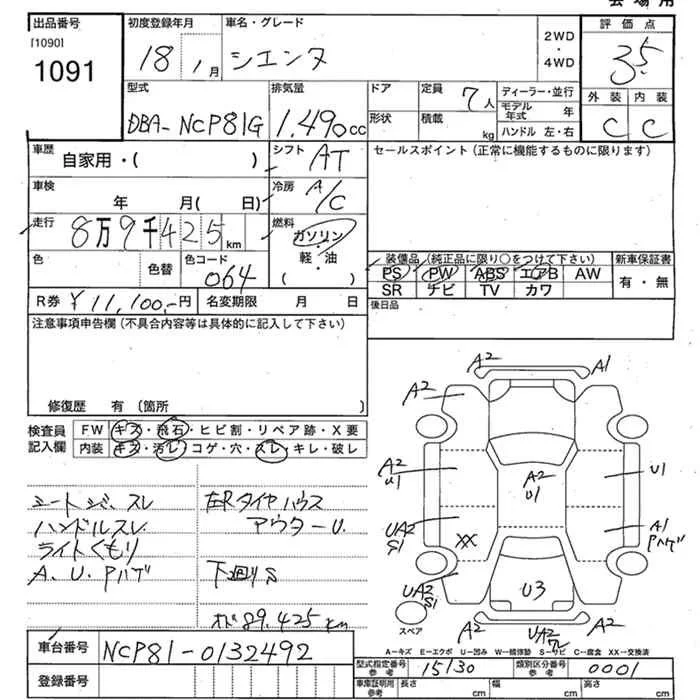 会場用
出品番号
[1090]
1091
初度登録年月
18 1月
車名・グレード
シエンタ
2WD
・
4WD
評価点
3.5
外装 内装
C C
型式
DBA-NCP81G
排気量
1.490cc
ドア
形状
定員 7人
積載 kg
ディーラー・並行
モデル年式 年
ハンドル 左・右
車歴 自家用・( )
シフト AT
セールスポイント(正常に機能するものに限ります)
車検 年 月( 日)
冷房 A/C
走行 8万9千425km
燃料 ガソリン・軽・油
色 色替 色コード 064
装備品(純正品に限り○をつけて下さい) 新車保証書
PS PW ABS エアB AW 有・無
SR ナビ TV カワ
R券 ¥11,100-円 名変期限 月 日
後日品
注意事項申告欄(不具合内容等は具体的に記入して下さい)
修復歴 有 (箇所 )
検査員記入欄
FW キズ・飛石・ヒビ割・リペア跡・X要
内装 キズ・汚レ・コゲ・穴・スレ・キレ・破レ
シートシミ、スレ
ハンドルスレ
ライトくもり
A.U.Pハゲ
左Rタイヤハウス
アウターU.
下廻りS
メーター89.425km
A2 A1
A2 A2
A2
U1
A2
U1
U1
UA2
S1
XX
A1
Pハゲ
UA2
S1
U3
A2 UA2 A2
スペア
A-キズ E-エクボ U-凹み W-補修塾 S-サビ C-腐食 XX-交換済
車台番号 NCP81-0132492
登録番号
型式指定番号参考 15130 類別区分番号参考 0001
車庫証明用参考 長さ cm 幅 cm 高さ cm